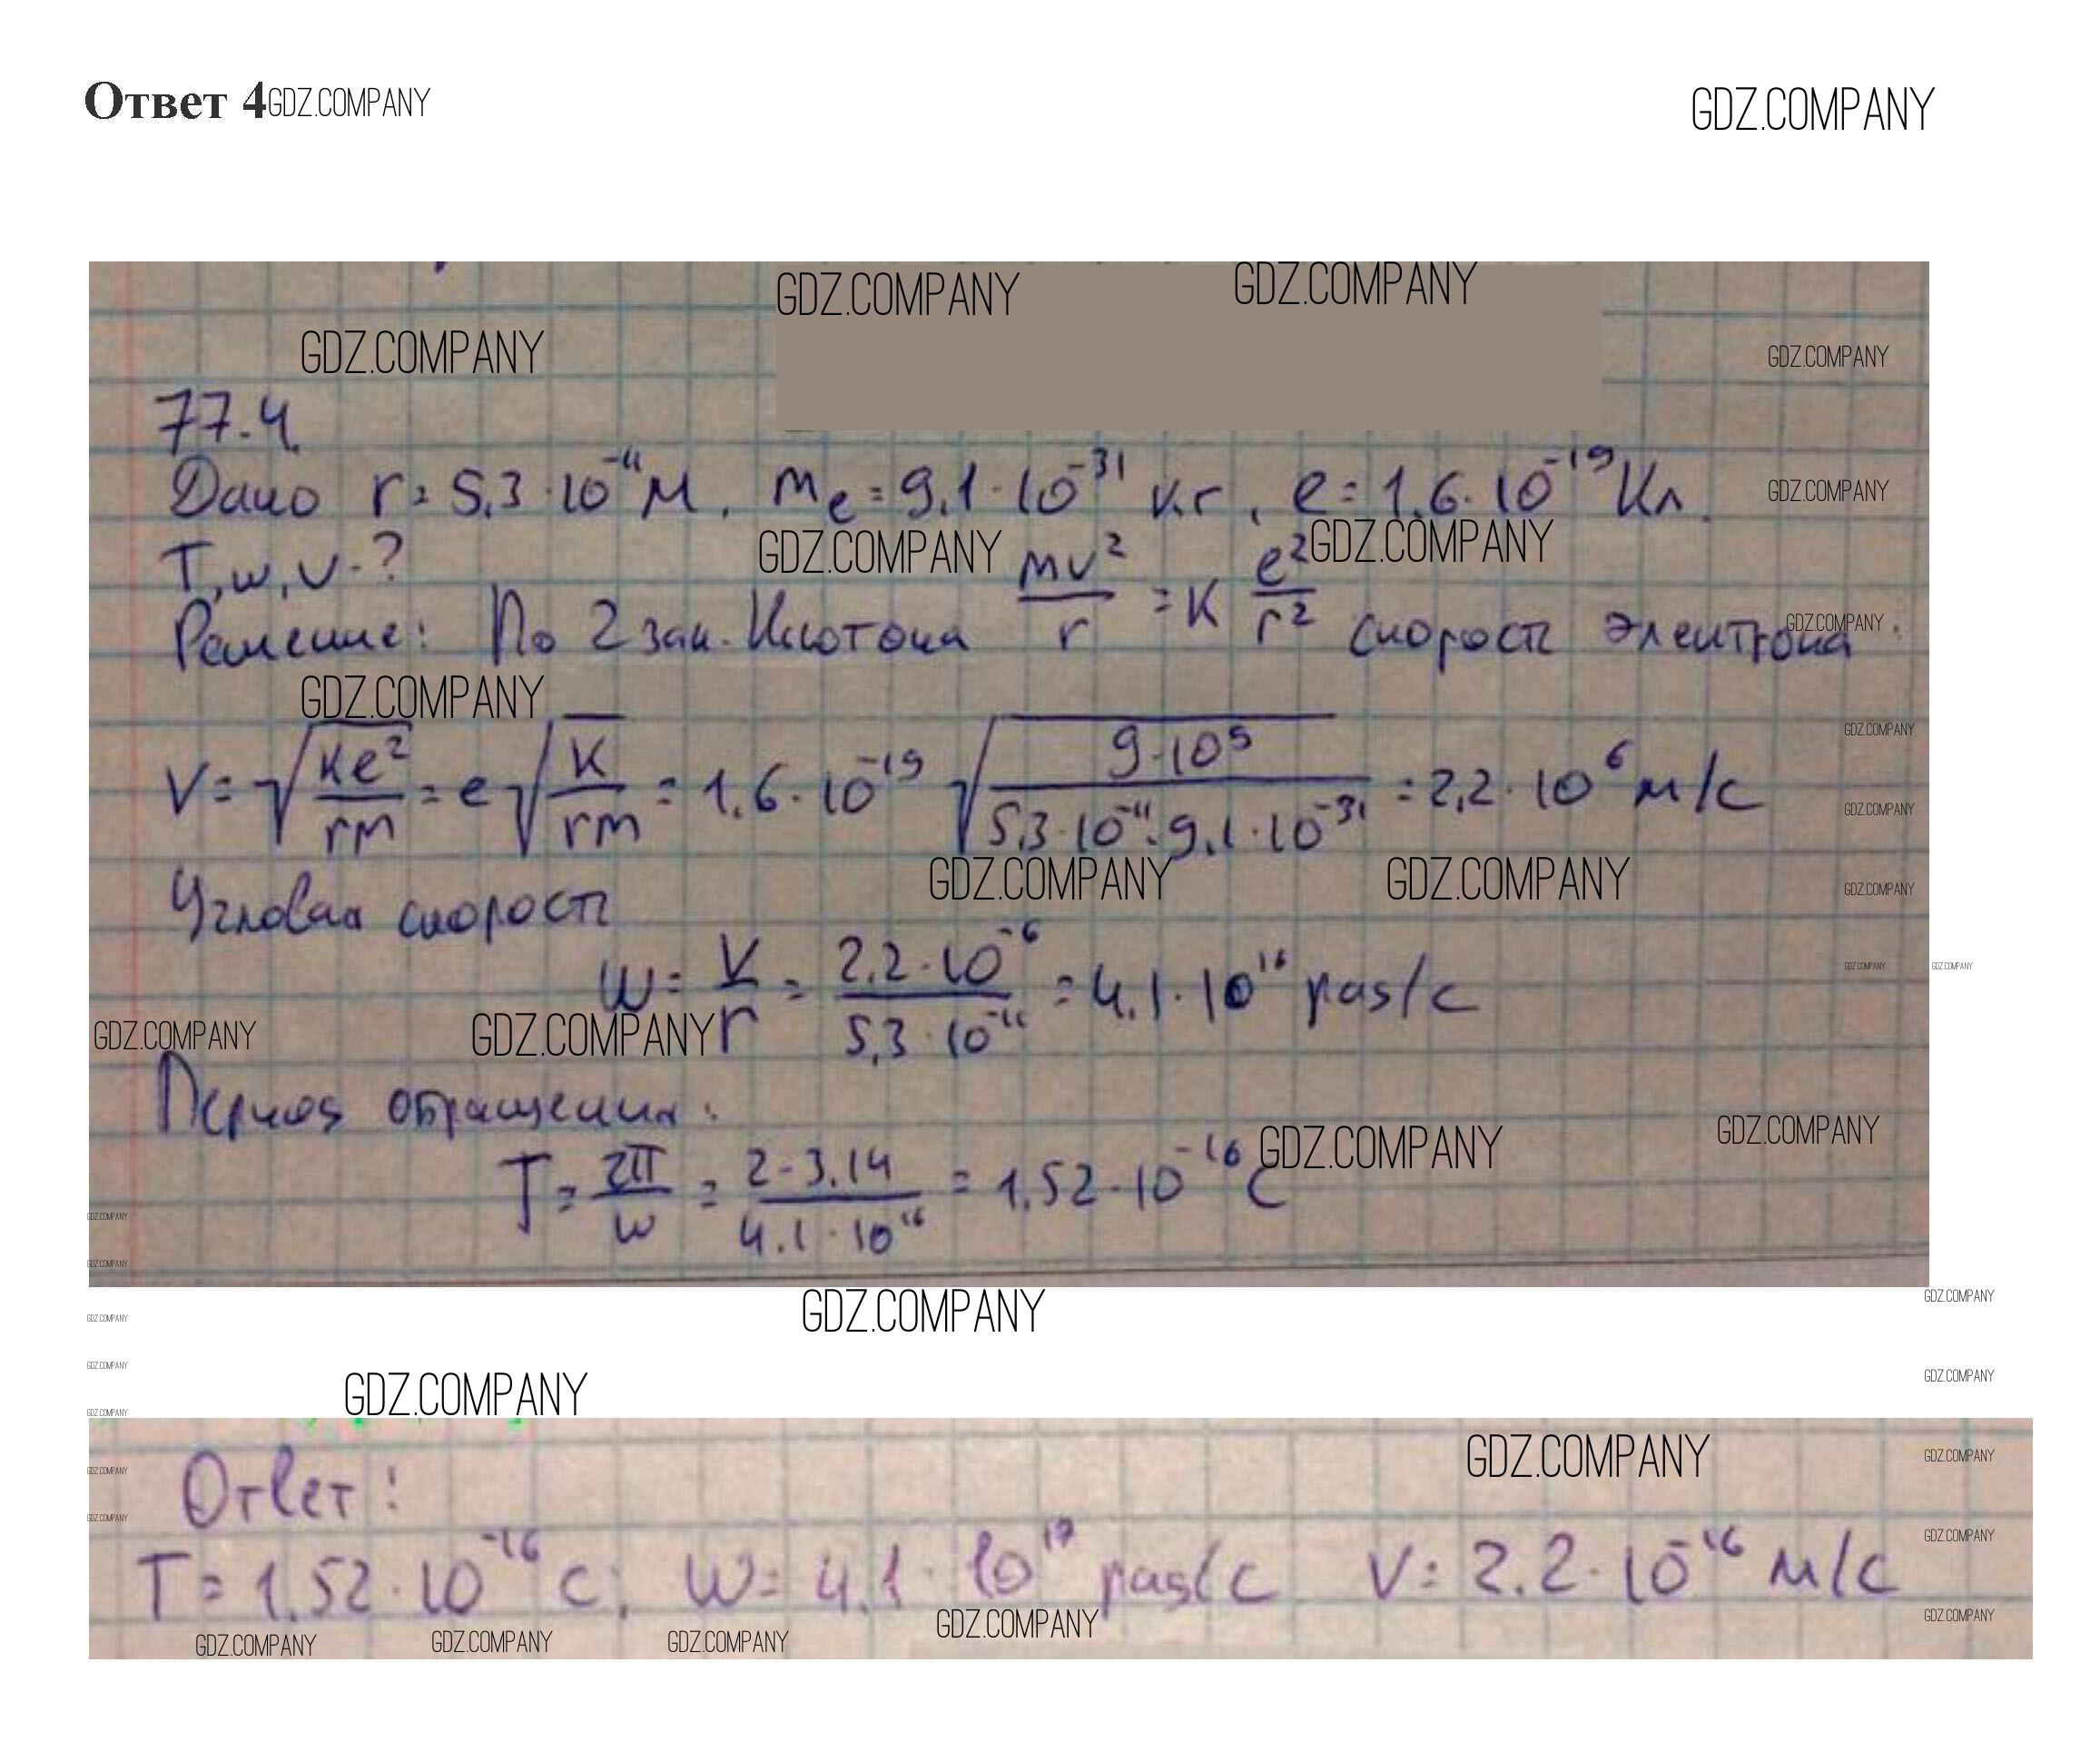 Ответ 4GDZ.COMPANY GDZ.COMPANY
GDZ.COMPANY GDZ.COMPANY
GDZ.COMPANY GDZ.COMPANY
77.4.
Дано r = 5,3 · 10⁻¹¹ м, mₑ = 9,1 · 10⁻³¹ кг, e = 1,6 · 10⁻¹⁹ Кл. GDZ.COMPANY
T, w, v - ? GDZ.COMPANY GDZ.COMPANY
Решение: По 2 зак. Ньютона mv²/r = K e²/r² скорость электрона: GDZ.COMPANY
GDZ.COMPANY GDZ.COMPANY
V = √(Ke²/rm) = e√(K/rm) = 1,6 · 10⁻¹⁹ √(9·10⁹/(5,3·10⁻¹¹·9,1·10⁻³¹)) = 2,2 · 10⁶ м/с GDZ.COMPANY
GDZ.COMPANY GDZ.COMPANY GDZ.COMPANY
Угловая скорость
w = V/r = 2,2·10⁻⁶/5,3·10⁻¹¹ = 4,1 · 10¹⁶ рад/с GDZ.COMPANY GDZ.COMPANY
GDZ.COMPANY GDZ.COMPANY
Период обращения:
GDZ.COMPANY GDZ.COMPANY
T = 2π/w = 2·3,14/4,1·10¹⁶ = 1,52·10⁻¹⁶ с
GDZ.COMPANY
GDZ.COMPANY
GDZ.COMPANY GDZ.COMPANY
GDZ.COMPANY
GDZ.COMPANY GDZ.COMPANY
GDZ.COMPANY
GDZ.COMPANY
Ответ: GDZ.COMPANY GDZ.COMPANY
GDZ.COMPANY
GDZ.COMPANY GDZ.COMPANY
T = 1,52 · 10⁻¹⁶ с; w = 4,1 · 10¹⁷ рад/с V = 2,2 · 10⁻¹⁶ м/с
GDZ.COMPANY GDZ.COMPANY GDZ.COMPANY GDZ.COMPANY GDZ.COMPANY